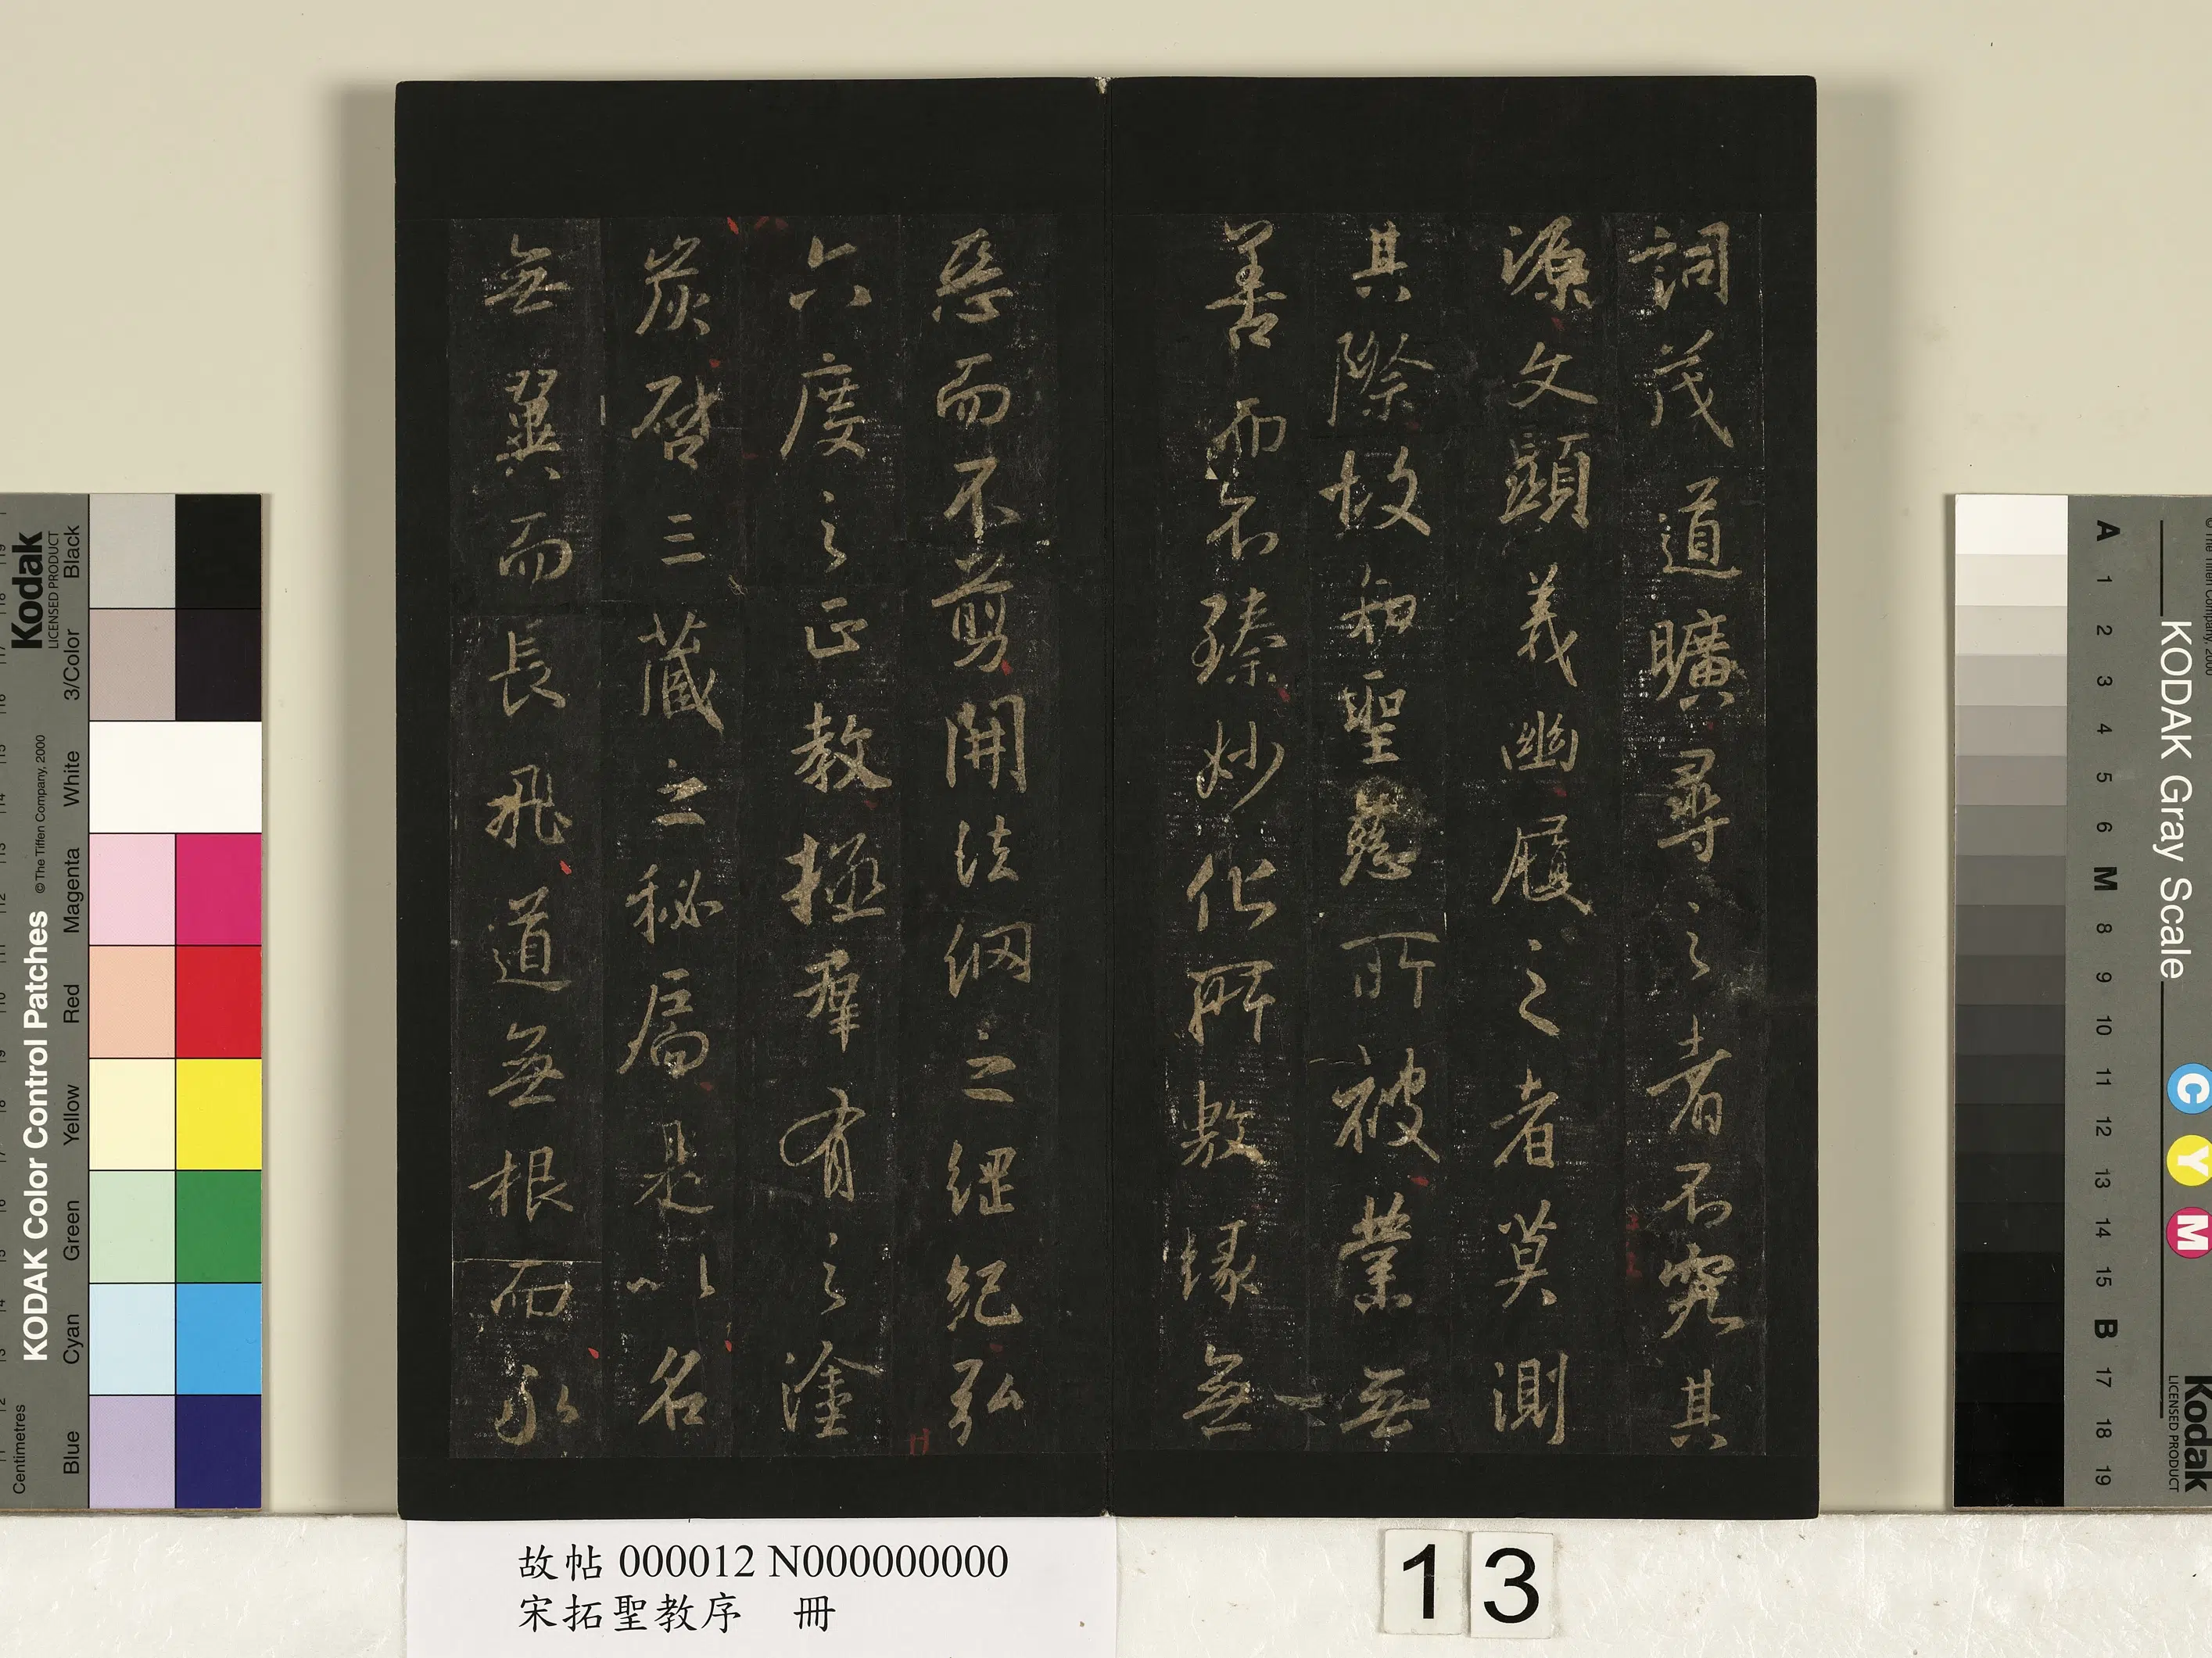 詞茂道曠尋之者不究其
源文顯義幽履之者莫測
其際故知聖慈所被業無
善而不臻妙化所敷緣無
惡而不剪開法網之綱紀弘
六度之正教拯羣有之塗
炭啓三藏之秘扃是以名
無翼而長飛道無根而永
故帖 000012 N000000000
宋拓聖教序 冊
13
KODAK Color Control Patches
©The Tiffen Company, 2000
Kodak
LICENSED PRODUCT
Centimetres
Blue Cyan Green Yellow Red Magenta White 3/Color Black
KODAK Gray Scale
A 1 2 3 4 5 6 M 8 9 10 11 12 13 14 15 B 17 18 19
C Y M
Kodak
LICENSED PRODUCT